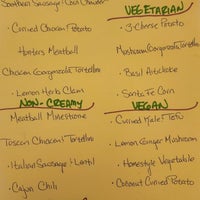 Southern Sausage + Corn Chowder
• Curried Chicken + Potato
Hunters Meatball
Chicken Gorgonzola Tortellini
• Lemon Herb Clam
NON-CREAMY
Meatball Minestrone
Tuscan Chicken + Tortellini
• Italian Sausage + Lentil
• Cajun Chili
VEGETARIAN
• 3-Cheese Potato
Mushroom Gorgonzola Tortellini
• Basil Artichoke
• Santa Fe Corn
VEGAN
• Curried Kale Tofu
• Lemon Ginger Mushroom
• Homestyle Vegetable
• Coconut Curried Potato